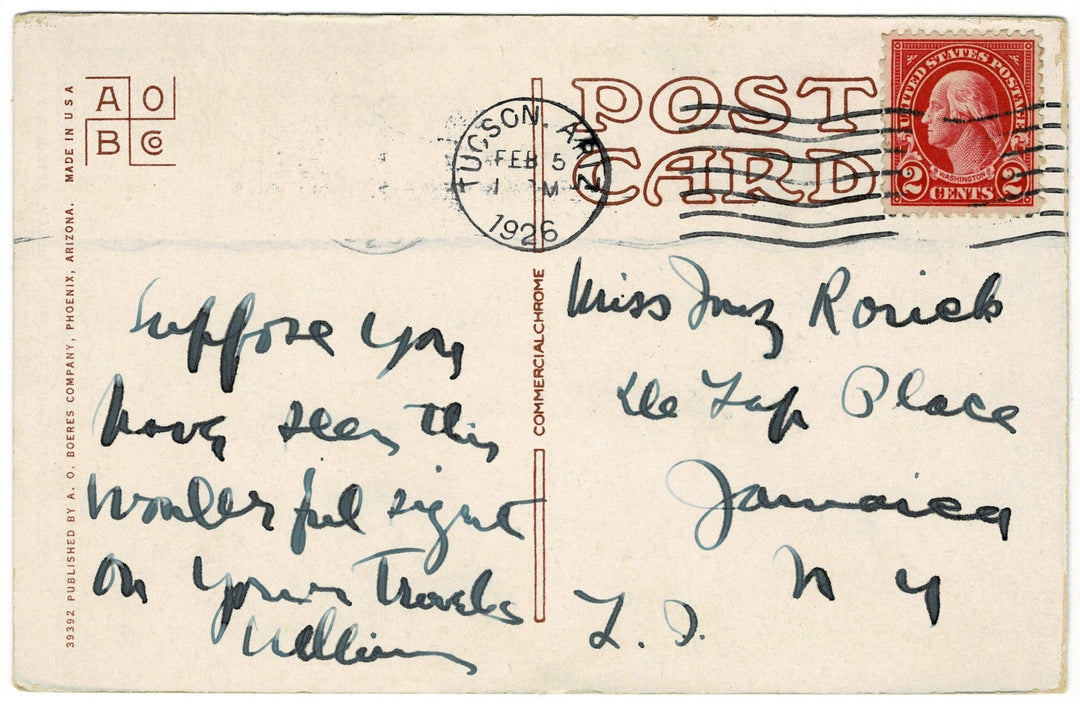 A O
B Co
MADE IN U S A
39392 PUBLISHED BY A. O. BOERES COMPANY, PHOENIX, ARIZONA.
COMMERCIALCHROME
POST
CARD
TUCSON. ARIZ
FEB 5
1 M
1926
UNITED STATES POSTAGE
WASHINGTON
2 CENTS 2
Suppose you
have seen this
wonderful sight
on your Travels
William
Miss Inez Rorick
Place
Jamaica
N Y
L. I.